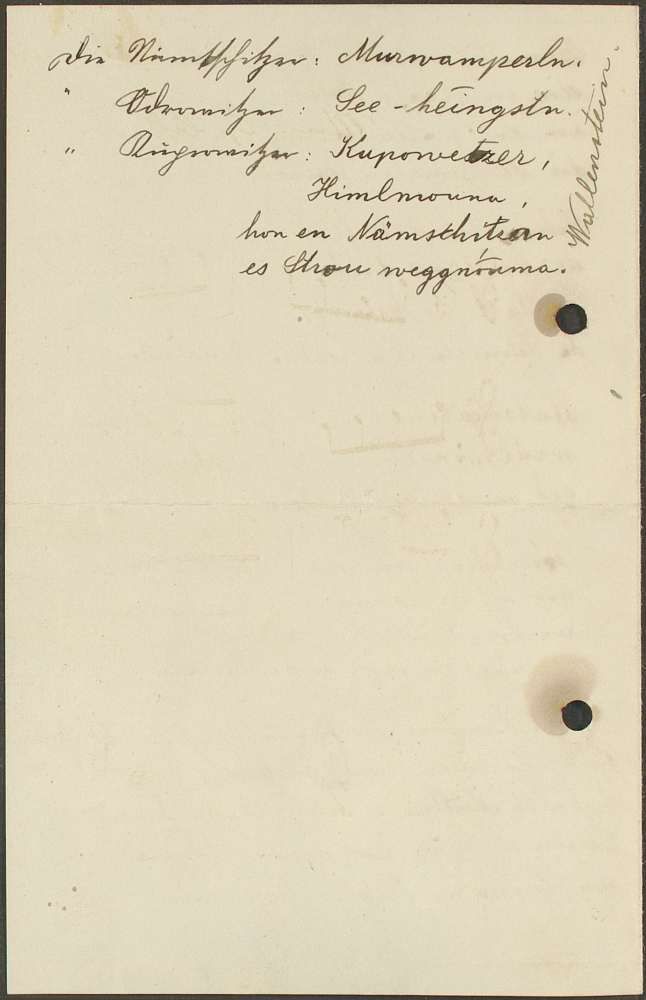 Die Nimtschitzer: Murwamperln.
" Odrowitzer: See-héingstn.
" Kuprowitzer: Kuponvetzer,
Himlmouna,
hon en Nämschitzan
es Strou weggnouma.
Wallenstein.